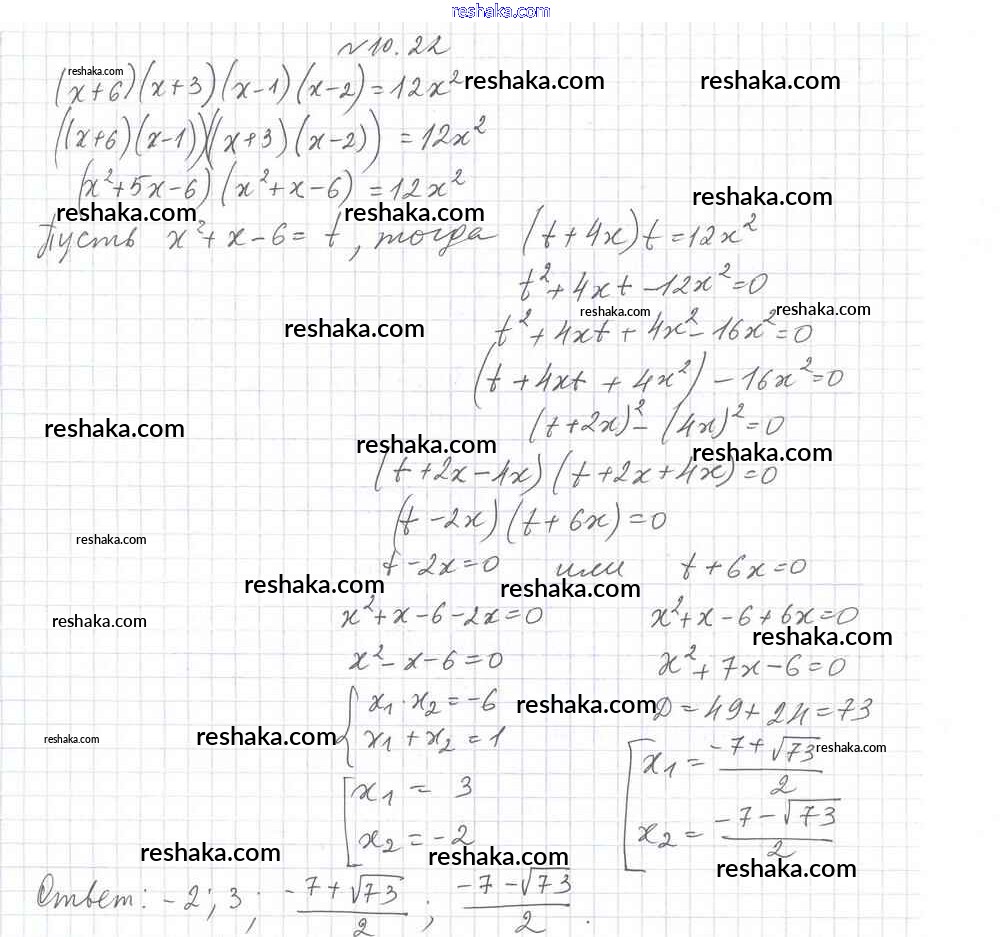 reshaka.com
№10.22
(x+6)(x+3)(x-1)(x-2)=12x²
reshaka.com reshaka.com reshaka.com
((x+6)(x-1))(x+3)(x-2))=12x²
(x²+5x-6)(x²+x-6)=12x²
reshaka.com
reshaka.com reshaka.com
Пусть x²+x-6=t, тогда (t+4x)t=12x²
t²+4xt-12x²=0
reshaka.com reshaka.com
reshaka.com t²+4xt+4x²-16x²=0
(t+4xt+4x²)-16x²=0
reshaka.com (t+2x)²-(4x)²=0
reshaka.com reshaka.com
(t+2x-4x)(t+2x+4x)=0
(t-2x)(t+6x)=0
reshaka.com
t-2x=0 или t+6x=0
reshaka.com reshaka.com
x²+x-6-2x=0 x²+x-6+6x=0
reshaka.com
reshaka.com
x²-x-6=0 x²+7x-6=0
x₁·x₂=-6 reshaka.com D=49+24=73
reshaka.com reshaka.com x₁+x₂=1
x₁=(-7+√73)/2 reshaka.com
x₁=3
x₂=-2 x₂=(-7-√73)/2
reshaka.com reshaka.com reshaka.com
Ответ: -2; 3; (-7+√73)/2; (-7-√73)/2.